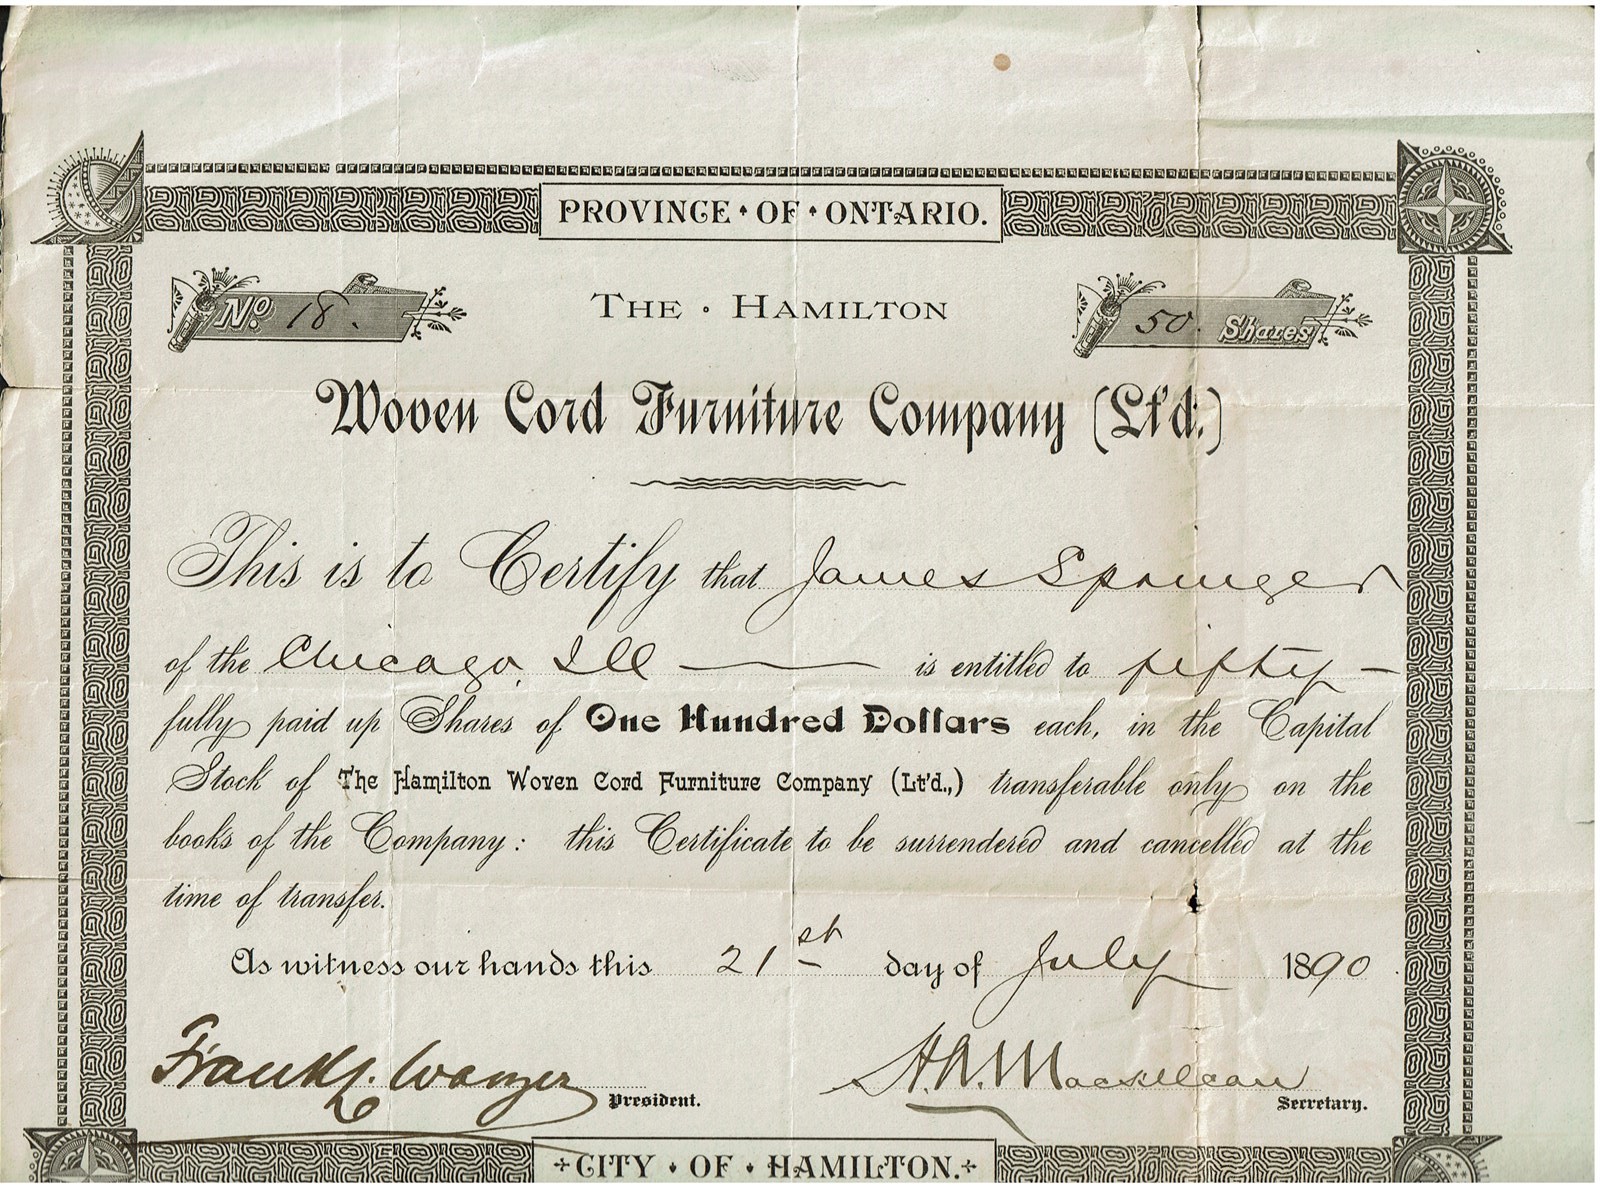 PROVINCE • OF • ONTARIO.
No. 18.
THE • HAMILTON
50. Shares
Woven Cord Furniture Company (Lt'd.)
This is to Certify that James Springer
of the Chicago, Ill — is entitled to fifty –
fully paid up Shares of One Hundred Dollars each, in the Capital
Stock of The Hamilton Woven Cord Furniture Company (Lt'd.,) transferable only on the
books of the Company: this Certificate to be surrendered and cancelled at the
time of transfer.
As witness our hands this 21st day of July 1890
Frank L. Wanzer
President.
Secretary.
CITY • OF • HAMILTON.